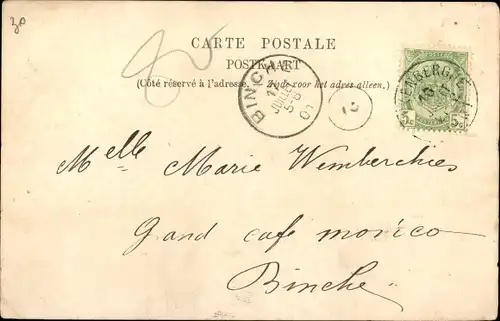 30
CARTE POSTALE
POSTKAART
(Côté réservé à l'adresse. Zijde voor het adres alleen.)
BINCHE
JUILLET
5-6
01
5c 5c
Melle Marie Wemberchies
Gand café monico
Binche